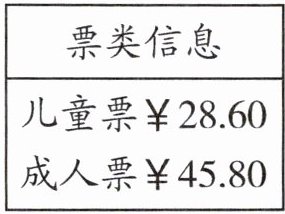 票类信息
儿童票￥28.60
成人票￥45.80